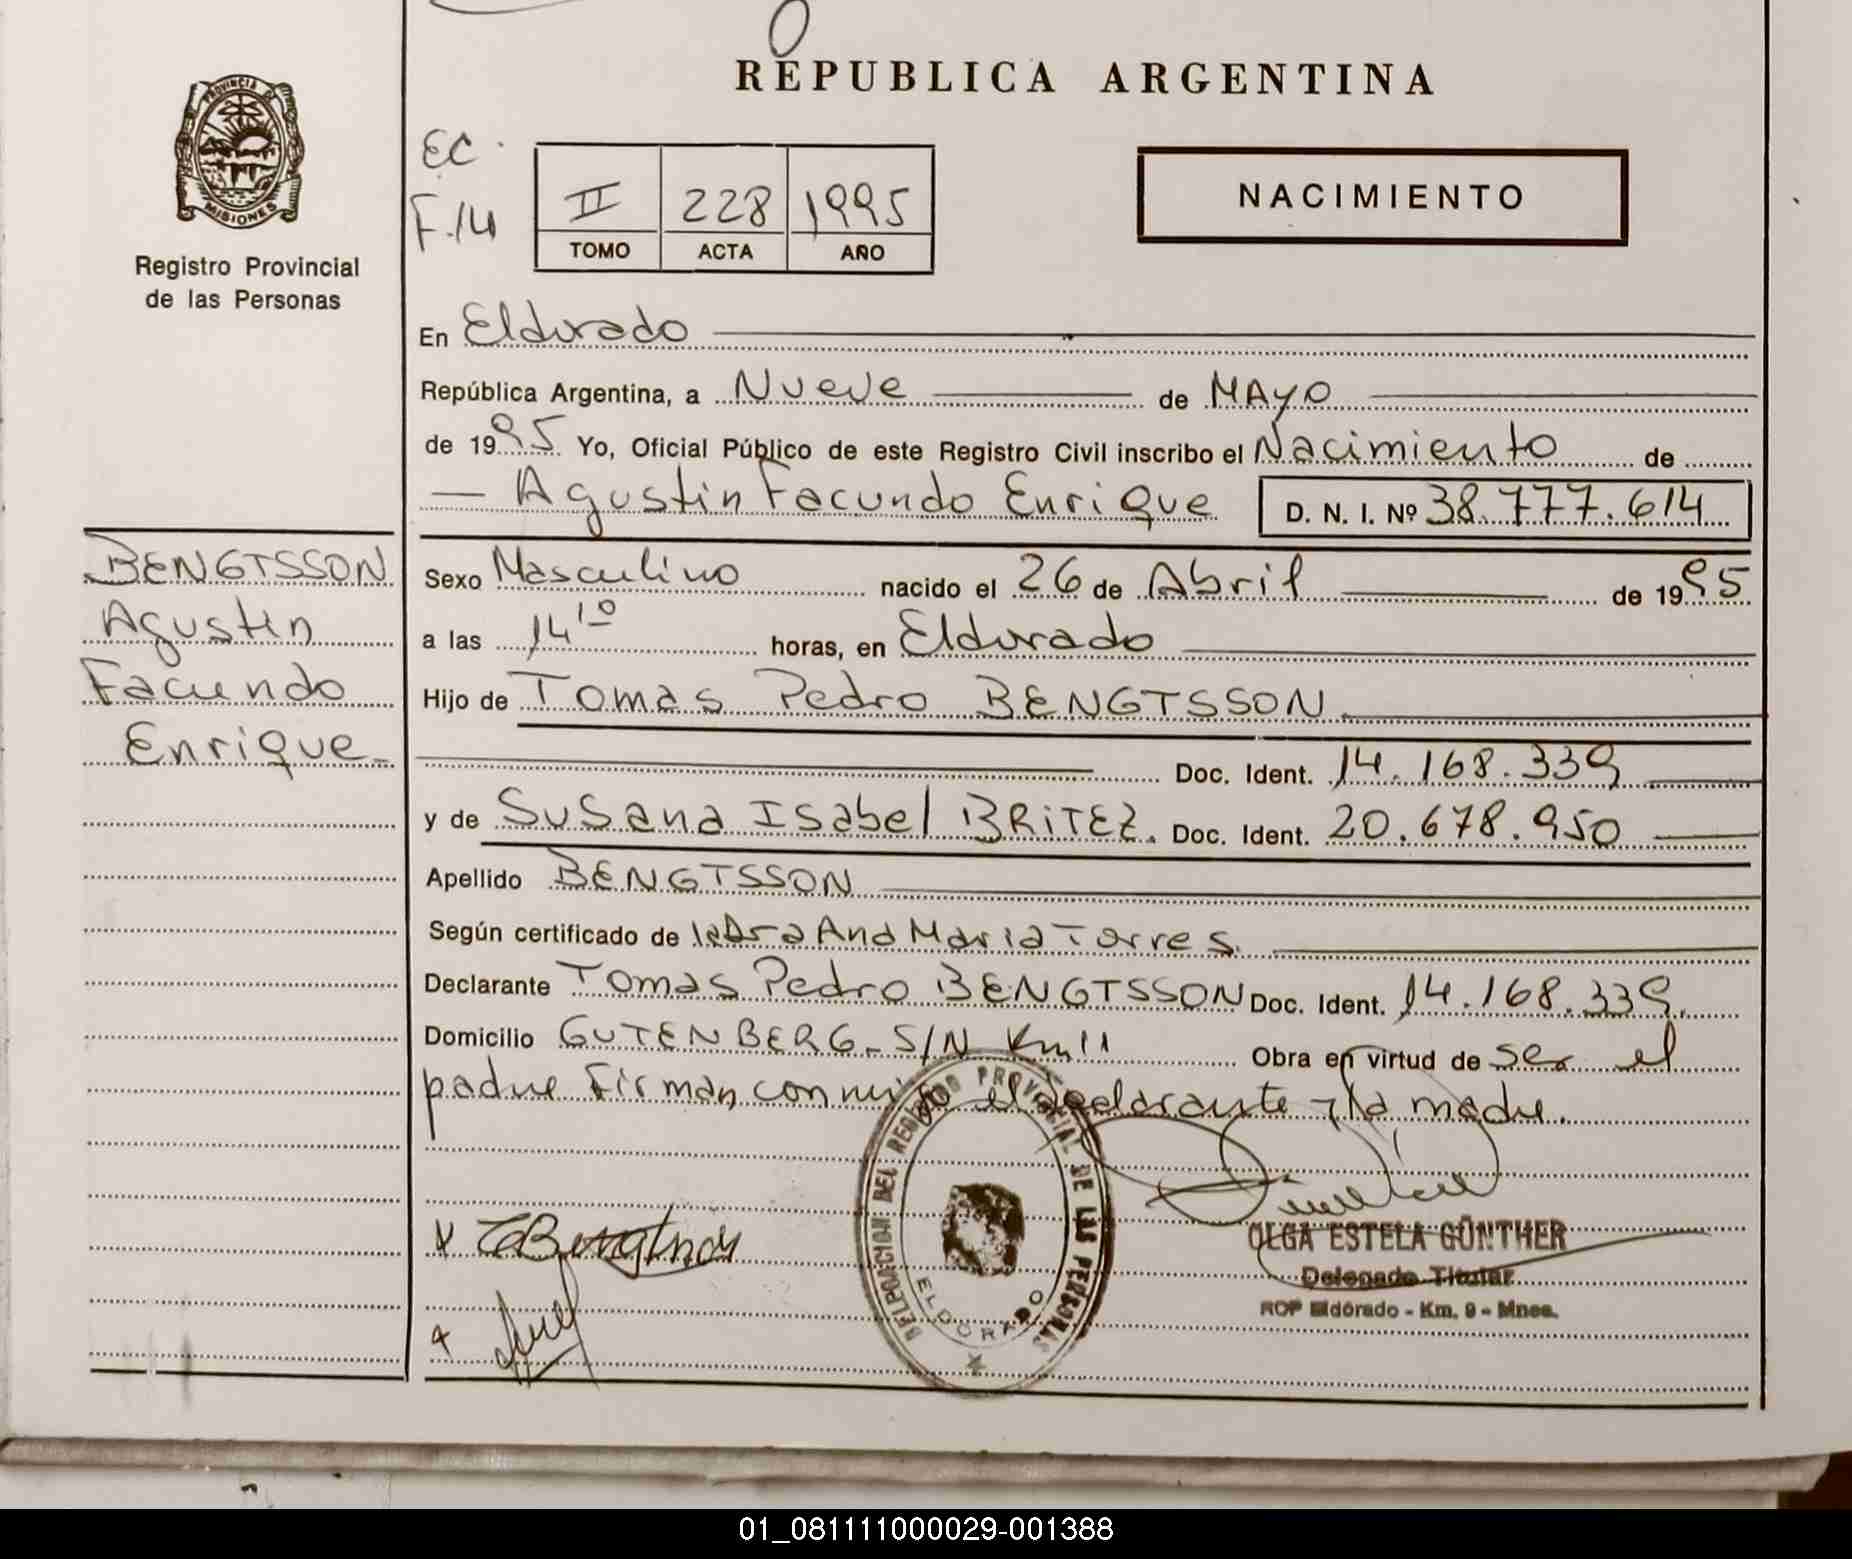 REPUBLICA ARGENTINA
PROVINCIA DE
MISIONES
Registro Provincial
de las Personas
EC.
F.14
II 228 1995
TOMO ACTA AÑO
NACIMIENTO
En Eldorado
República Argentina, a Nueve de MAYO
de 1995 Yo, Oficial Público de este Registro Civil inscribo el Nacimiento de
Agustin Facundo Enrique D. N. I. Nº 38.777.614
BENGTSSON
Agustin
Facundo
Enrique
Sexo Masculino nacido el 26 de Abril de 1995
a las 14 10 horas, en Eldorado
Hijo de Tomas Pedro BENGTSSON
Doc. Ident. 14.168.339
y de Susana Isabel BRITEZ. Doc. Ident. 20.678.950
Apellido BENGTSSON
Según certificado de la Dra Ana Maria Torres.
Declarante Tomas Pedro BENGTSSON Doc. Ident. 14.168.339.
Domicilio GUTENBERG - S/N Km 11 Obra en virtud de ser el
padre Firman con mi el declarante y la madre.
DEL REGISTRO PROVINCIAL DE LAS PERSONAS
ELDORADO
OLGA ESTELA GÜNTHER
Delegado Titular
RDP Eldorado - Km. 9 - Mnes.
01_081111000029-001388